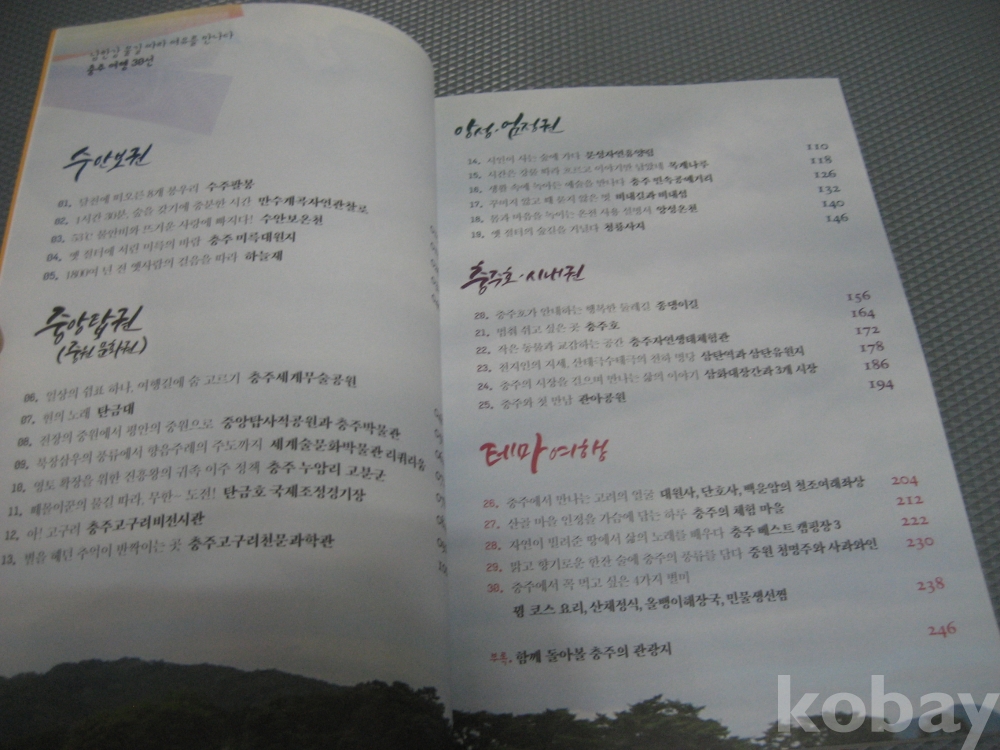 남한강 물길 따라 여유를 만나다
충주 여행 30선
수안보권
01. 달천에 떠오른 8개 봉우리 수주팔봉
02. 1시간 30분, 숲을 갖기에 충분한 시간 만수계곡자연관찰로
03. 53℃ 물안비와 뜨거운 사랑에 빠지다! 수안보온천
04. 옛 절터에 서린 미륵의 바람 충주 미륵대원지
05. 1800여 년 전 옛사람의 걸음을 따라 하늘재
중앙탑권
(중원 문화권)
06. 일상의 쉼표 하나, 여행길에 숨 고르기 충주세계무술공원
07. 현의 노래 탄금대
08. 긴장의 중원에서 평안의 중원으로 중앙탑사적공원과 충주박물관
09. 북창삼우의 풍류에서 향음주례의 주도까지 세계술문화박물관 리쿼리움
10. 영토 확장을 위한 진흥왕의 귀족 이주 정책 충주 누암리 고분군
11. 배불이꾼의 물길 따라, 무한~ 도전! 탄금호 국제조정경기장
12. 아! 고구려 충주고구려비전시관
13. 별을 헤던 추억이 반짝이는 곳 충주고구려천문과학관
앙성·엄정권
14. 시인이 사는 숲에 가다 문성자연휴양림 110
15. 시간은 강물 따라 흐르고 이야기만 남았네 목계나루 118
16. 생활 속에 녹아는 예술을 만나다 충주 민속공예거리 126
17. 꾸미지 않고 때 묻지 않은 멋 비내길과 비내섬 132
18. 몸과 마음을 녹이는 온천 사용 설명서 앙성온천 140
19. 옛 절터의 숨길을 거닐다 청룡사지 146
충주호·시내권
20. 충주호가 안내하는 행복한 둘레길 종댕이길 156
21. 멈춰 쉬고 싶은 곳 충주호 164
22. 작은 동물과 교감하는 공간 충주자연생태체험관 172
23. 천지인의 지세, 산태극수태극의 천하 명당 삼탄역과 삼탄유원지 178
24. 충주의 시장을 걸으며 만나는 삶의 이야기 삼화대장간과 3개 시장 186
25. 충주와 첫 만남 관아공원 194
테마여행
26. 충주에서 만나는 고려의 얼굴 대원사, 단호사, 백운암의 철조여래좌상 204
27. 산골 마을 인정을 가슴에 담는 하루 충주의 체험 마을 212
28. 자연이 빌려준 땅에서 삶의 노래를 배우다 충주 베스트 캠핑장 3 222
29. 맑고 향기로운 한잔 술에 충주의 풍류를 담다 중원 청명주와 사과와인 230
30. 충주에서 꼭 먹고 싶은 4가지 별미
꿩 코스 요리, 산채정식, 올뱅이해장국, 민물생선찜 238
부록. 함께 돌아볼 충주의 관광지 246
kobay